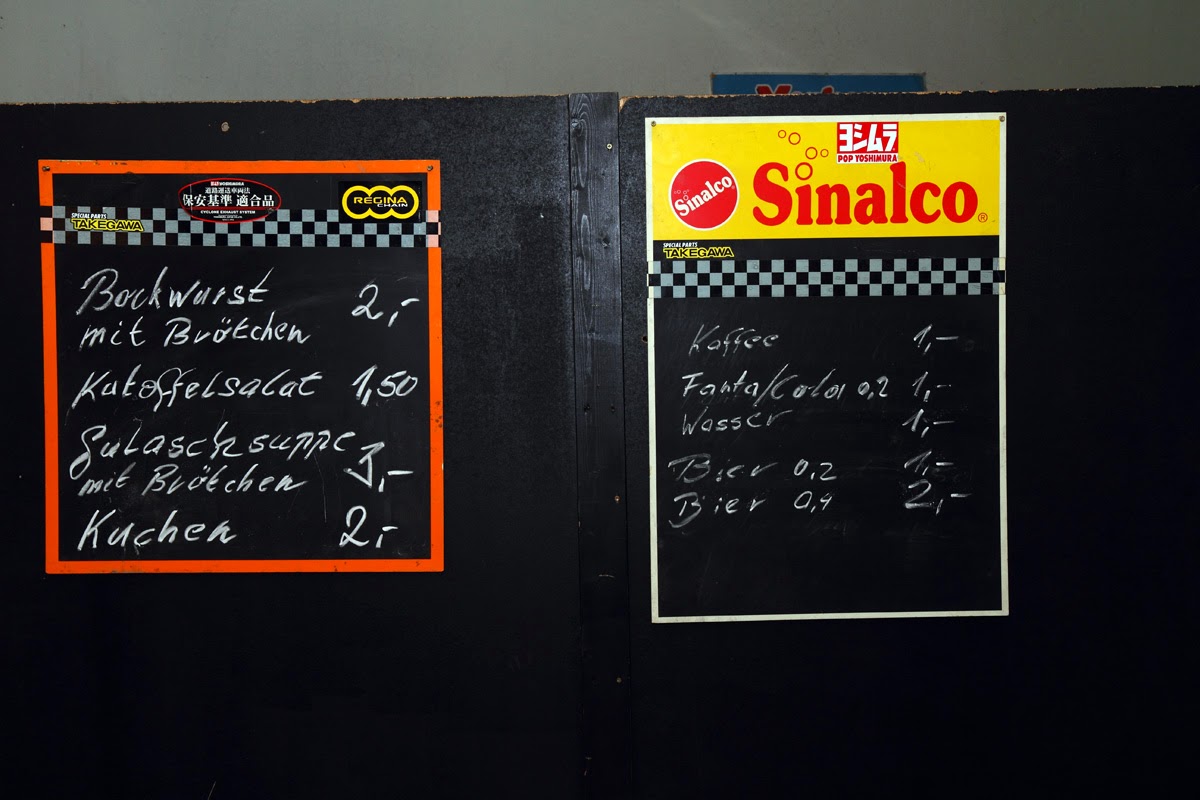 YOSHIMURA
道路運送車両法
保安基準 適合品
CYCLONE EXHAUST SYSTEM
REGINA
CHAIN
SPECIAL PARTS
TAKEGAWA
Bockwurst 2,-
mit Brötchen
Katoffelsalat 1,50
Gulaschsuppe
mit Brötchen 3,-
Kuchen 2,-
ヨシムラ
POP YOSHIMURA
Sinalco
Sinalco®
SPECIAL PARTS
TAKEGAWA
Kaffee 1,-
Fanta/Cola 0,2 1,-
Wasser 1,-
Bier 0,2 1,-
Bier 0,4 2,-